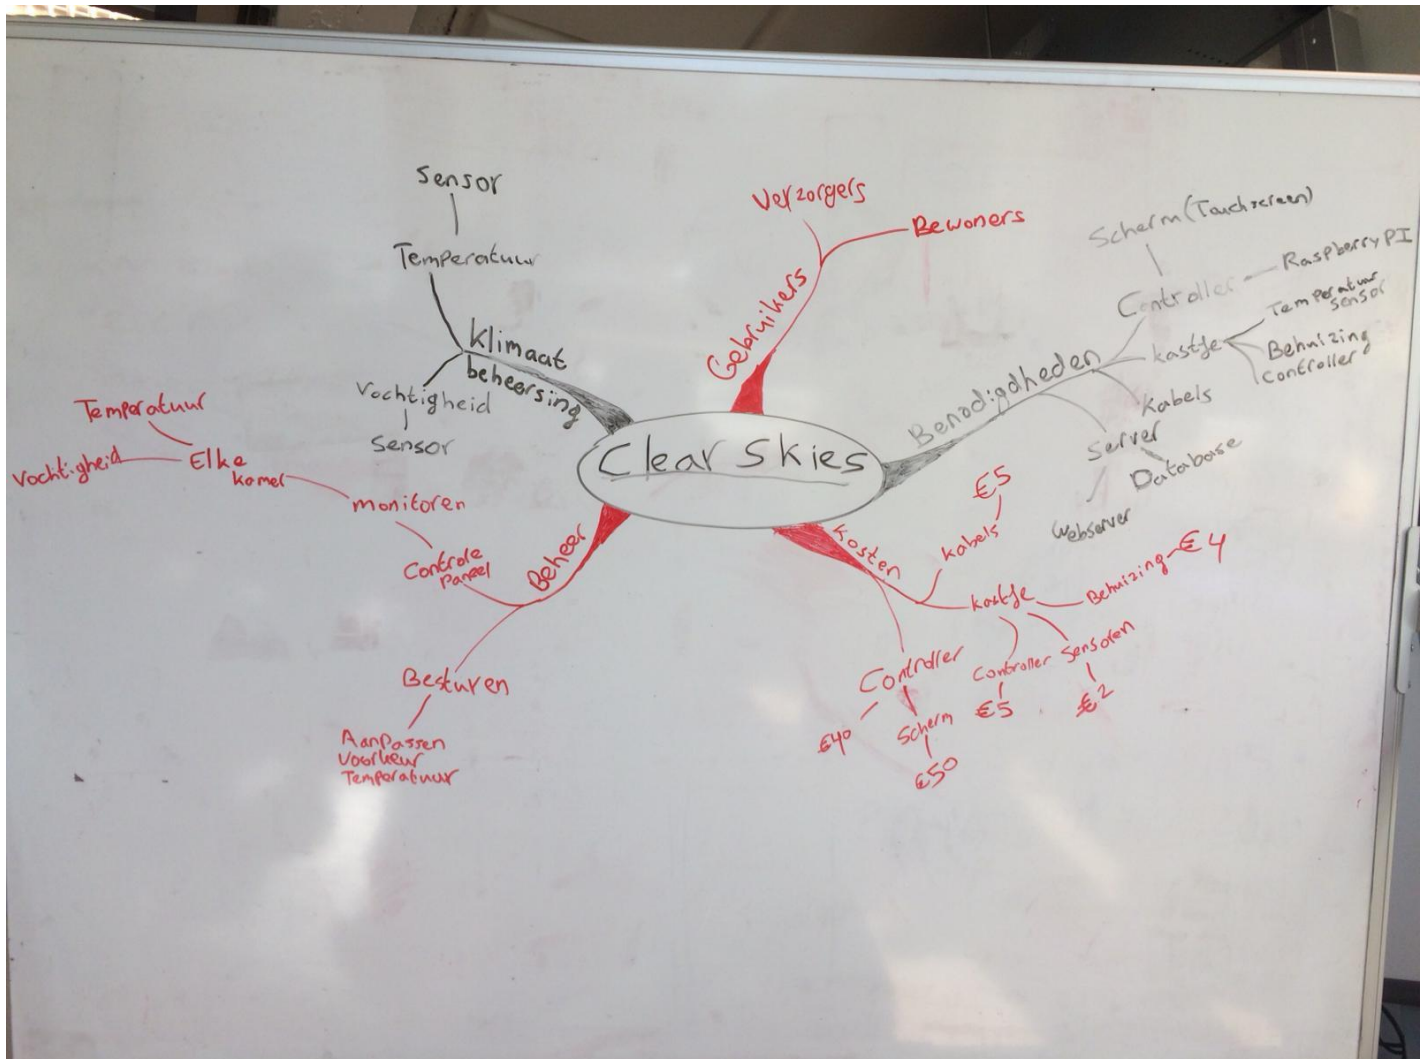 Clear Skies
Klimaat
beheersing
Temperatuur
Sensor
Vochtigheid
Sensor
Gebruikers
Verzorgers
Bewoners
Benodigdheden
Controller
Scherm (Touchscreen)
Raspberry PI
kastje
Temperatuur
sensor
Behuizing
Controller
Kabels
Server
Database
Webserver
Kosten
Kabels
€5
kastje
Behuizing
€4
Sensoren
€2
Controller
€5
Controller
€40
Scherm
€50
Beheer
Controle
Paneel
monitoren
Elke
kamer
Temperatuur
Vochtigheid
Besturen
Aanpassen
Voorkeur
Temperatuur